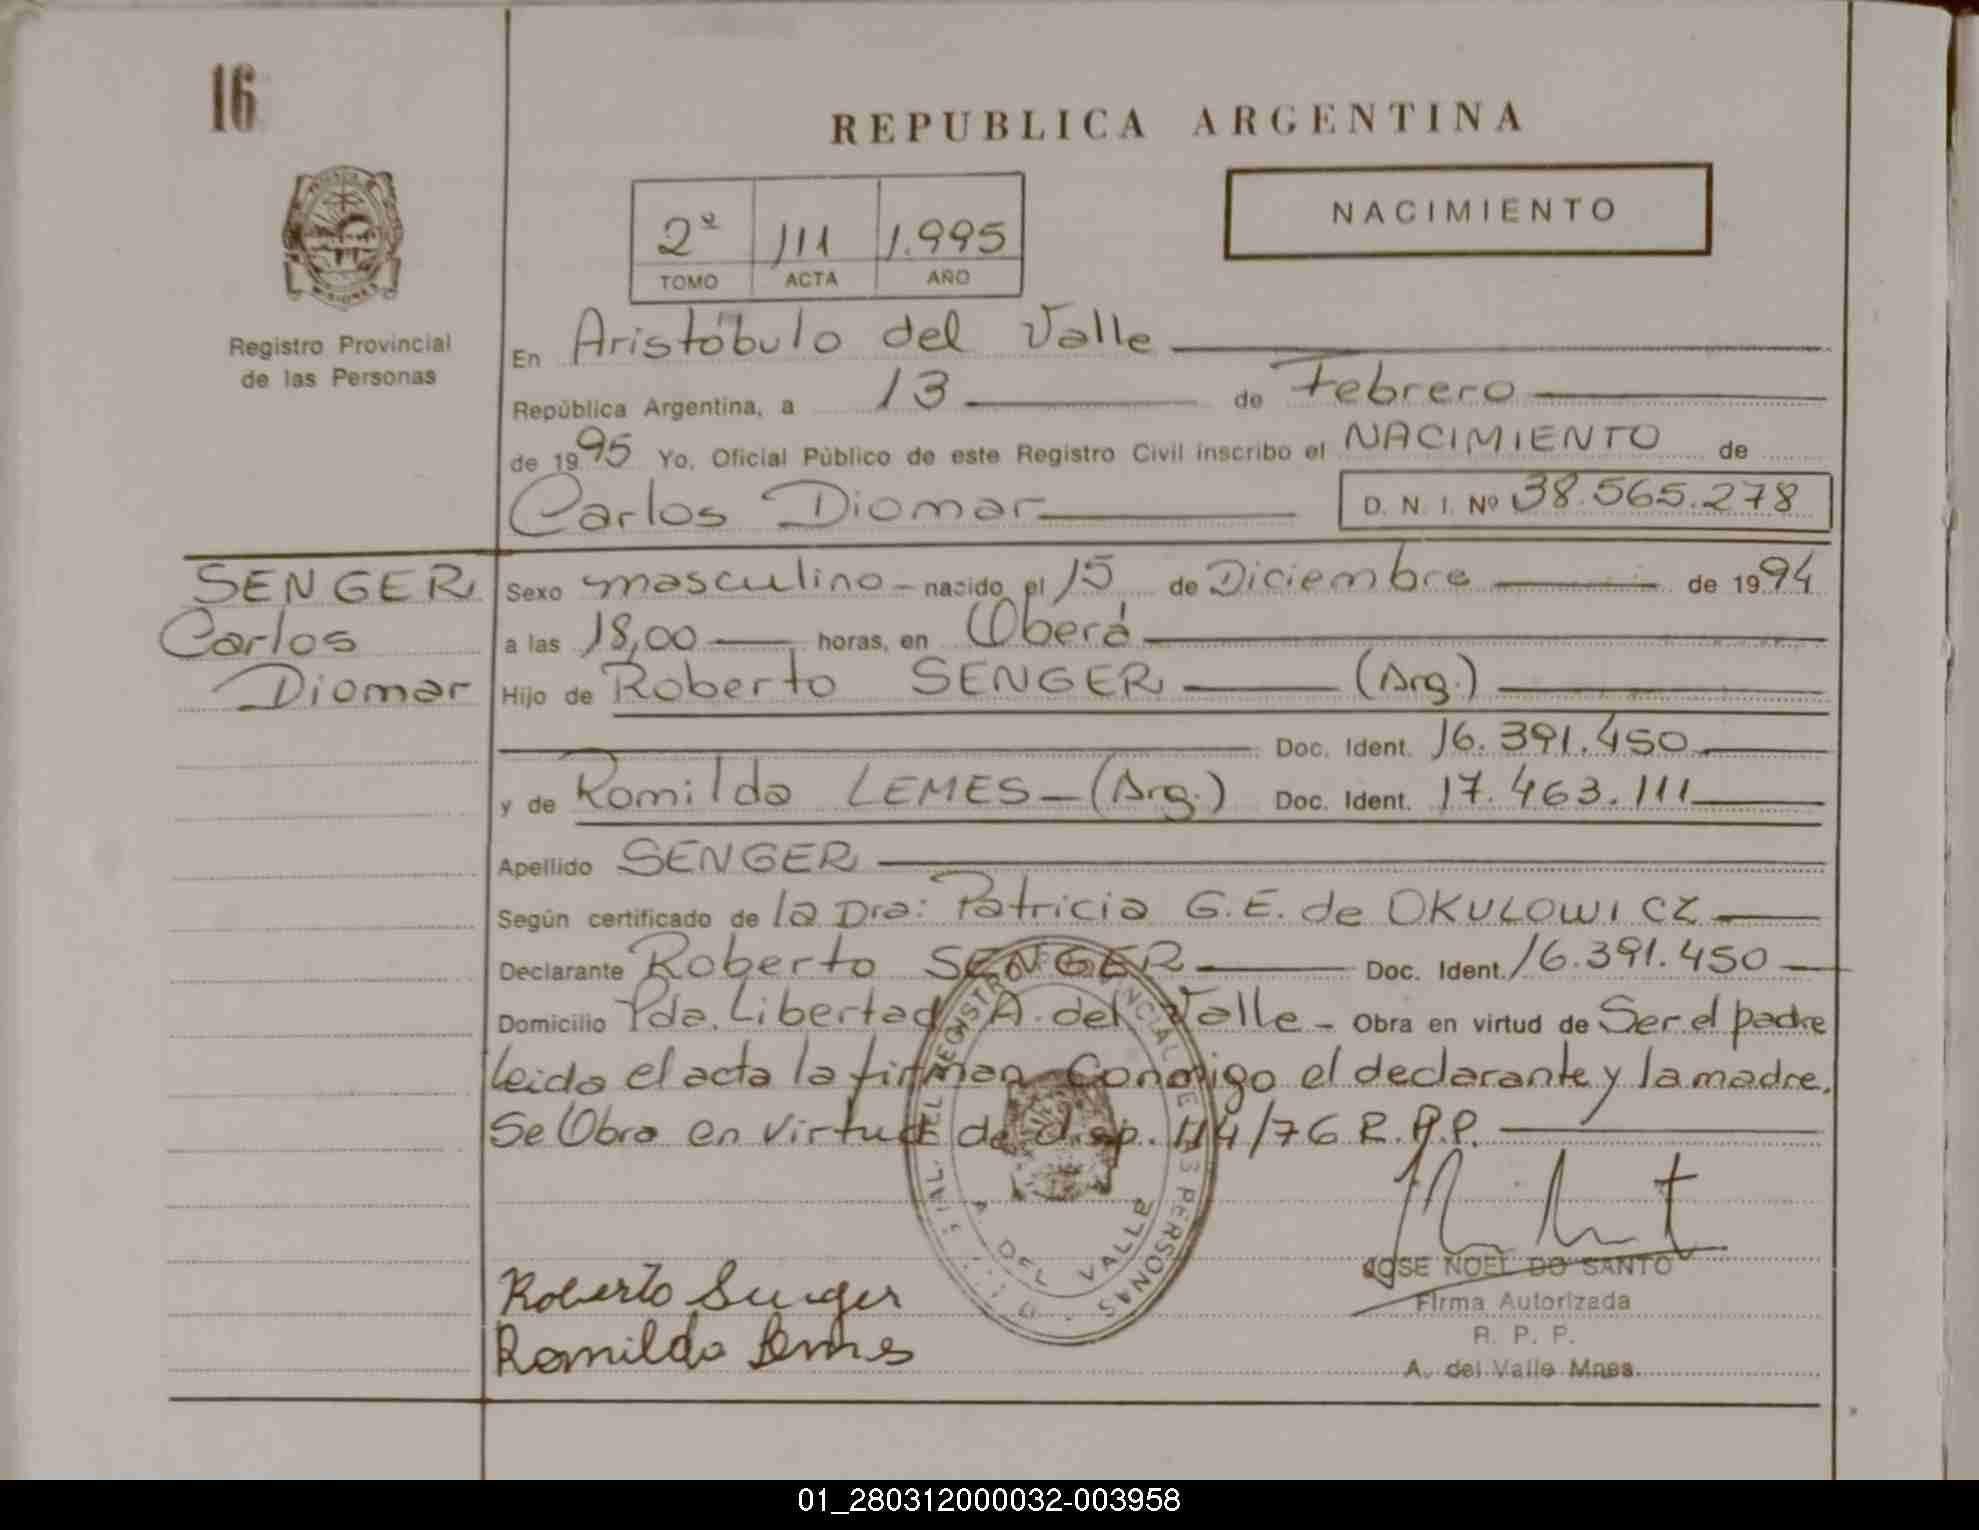 16
REPUBLICA ARGENTINA
NACIMIENTO
2º 111 1.995
TOMO ACTA AÑO
MISIONES
Registro Provincial
de las Personas
En Aristóbulo del Valle
República Argentina, a 13 de Febrero
de 1995 Yo, Oficial Público de este Registro Civil inscribo el NACIMIENTO de
Carlos Diomar D. N. I. Nº 38.565.278
SENGER
Carlos
Diomar
Sexo masculino - nacido el 15 de Diciembre de 1994
a las 18,00 horas, en Oberá
Hijo de Roberto SENGER (Arg.)
Doc. Ident. 16.391.450
y de Romilda LEMES - (Arg.) Doc. Ident. 17.463.111
Apellido SENGER
Según certificado de la Dra: Patricia G.E. de OKULOWICZ
Declarante Roberto SENGER Doc. Ident. 16.391.450
Domicilio Pda. Libertad A. del Valle - Obra en virtud de Ser el padre
Leida el acta la firman Conmigo el declarante y la madre.
Se Obra en virtud de disp. 114/76 R.P.P.
DEL REGISTRO PROVINCIAL DE LAS PERSONAS
A. DEL VALLE
Roberto Senger
Romilda Lemes
JOSE NOEL DO SANTO
Firma Autorizada
R. P. P.
A. del Valle Mnes.
01_280312000032-003958